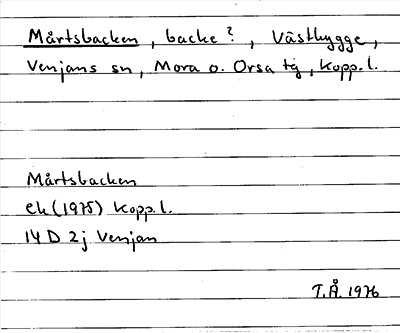 Mårtsbacken, backe?, Västbygge,
Venjans sn, Mora o. Orsa tg, Kopp.l.
Mårtsbacken
ek(1975) Kopp.l.
14D 2j Venjan
T.Å. 1976